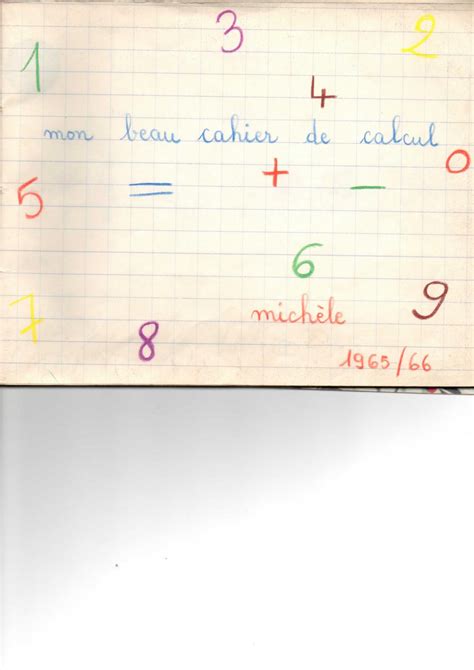 1 3 2
4
mon beau cahier de calcul
5 = + - 0
6
7 michèle 9
8 1965/66